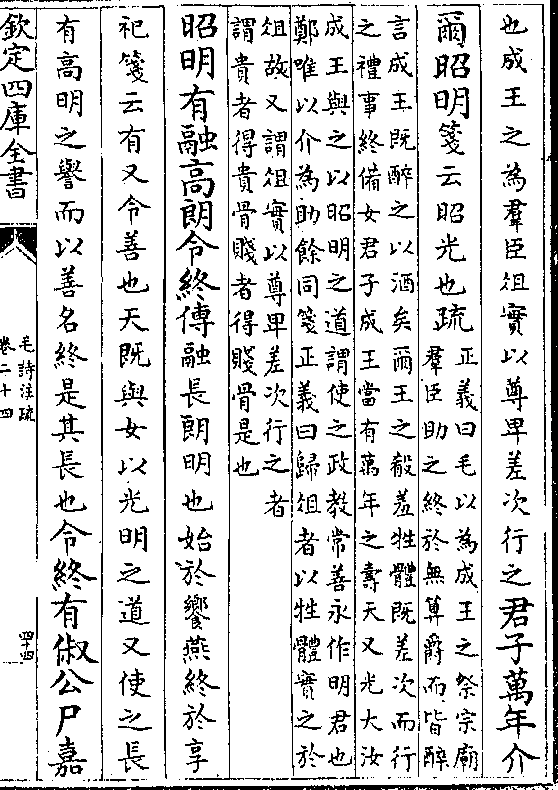 也成王之為羣臣俎實以尊卑差次行之君子萬年介
爾昭明箋云昭光也疏
正義曰毛以為成王之祭宗廟
羣臣助之終於無算爵而皆醉
言成王既醉之以酒矣爾王之殽羞牲體既差次而行
之禮事終備女君子成王當有萬年之壽天又光大汝
成王與之以昭明之道謂使之政教常善永作明君也
鄭唯以介為助餘同箋正義曰歸俎者以牲體實之於
俎故又謂俎實以尊卑差次行之者
謂貴者得貴骨賤者得賤骨是也
昭明有融高朗令終傳融長朗明也始於饗燕終於享
祀箋云有又令善也天既與女以光明之道又使之長
有高明之譽而以善名終是其長也令終有俶公尸嘉
欽定四庫全書
毛詩注疏
卷二十四
四十四